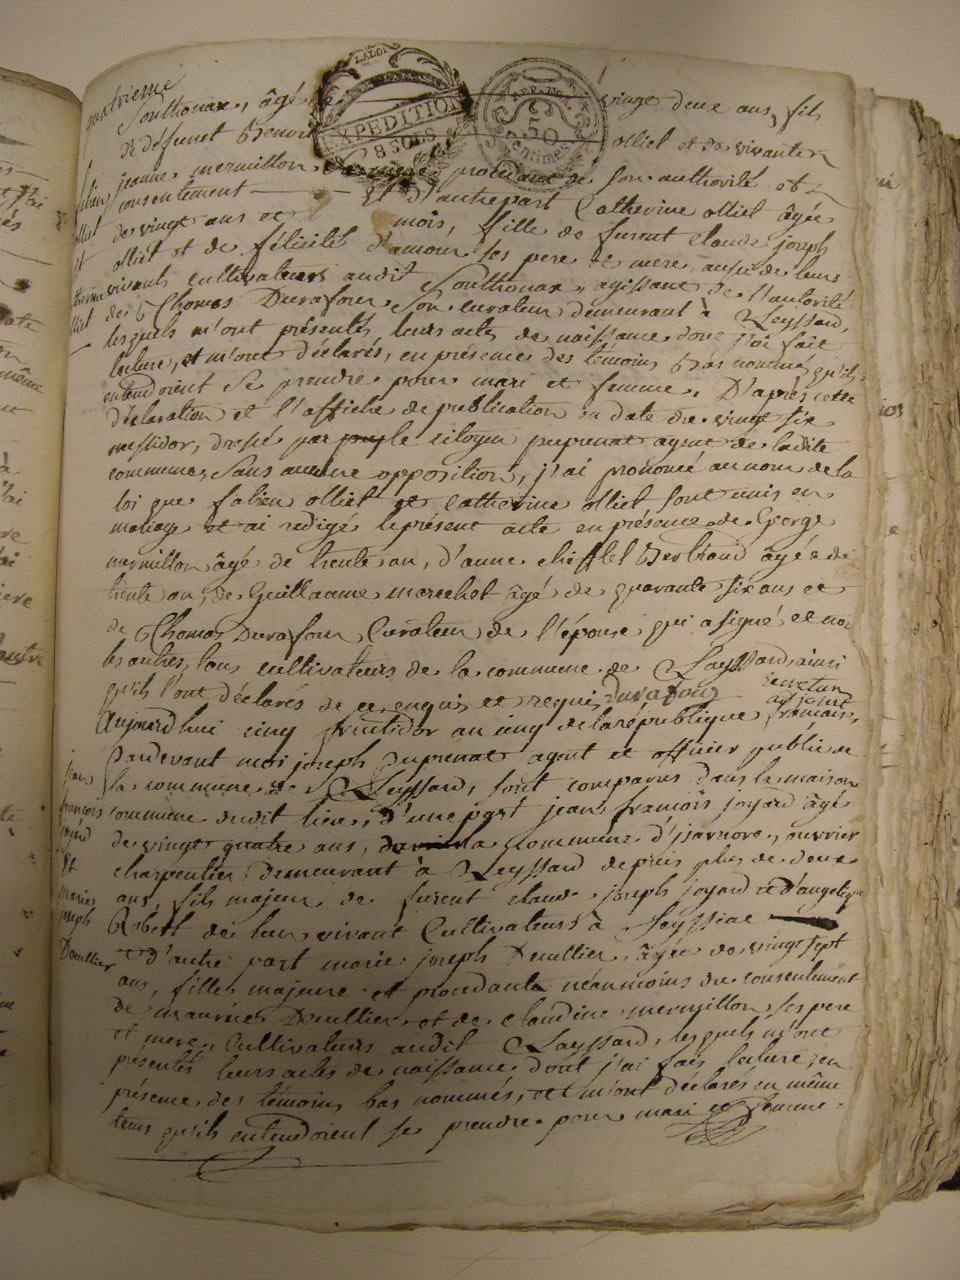 quatrieme
Southonax, âgé de vingt deux ans, fils
de défunct Benoit olliet et de vivante
jeanne mermillon, sa mere, procédant de son authorité et
consentement - Et d'autre part Catherine olliet âgée
de vingt ans et mois, fille de furent claude joseph
olliet et de félicité d'amour ses pere et mere, aussi de leurs
vivants cultivateurs audit Southonax, agissant de l'autorité
de Thomas Durafour son curateur demeurant à Leyssard,
lesquels m'ont présentés leurs actes de naissance dont j'ai fait
lecture, et m'ont déclarés, en présence des témoins bas nommés qu'ils
entendoient se prendre pour mari et femme. D'après cette
déclaration et l'affiche de publication en date du vingt six
messidor, dressé par le citoyen puprenat agent de ladite
commune, sans aucune opposition, j'ai prononcé au nom de la
loi que fabien olliet et catherine olliet sont unis en
mariage et ai redigé le présent acte en présence de George
mermillon âgé de trente an, d'anne chifflet Bertrand âgée de
trente an, de Guillaume marechot âgé de quarante six ans et
de Thomas Durafour Curateur de l'épouse qui a signé et non
les autres, tous cultivateurs de la commune de Layssard, ainsi
qu'ils l'ont déclarés de ce enquis et requis, durafour
adjoint
Aujourd'hui cinq fructidor an cinq de la république francaise,
Pardevant moi joseph puprenat agent et officier public de
la commune de Leyssard, sont comparus dans la maison
commune dudit lieu, d'une part jean francois joyard âgé
de vingt quatre ans, de la commune d'jzernore, ouvrier
charpentier demeurant à Leyssard depuis plus de deux
ans, fils majeur de furent claude joseph joyard et d'angelique
Robett de leur vivant Cultivateurs à Seyssiat
d'autre part marie joseph Deullier, âgée de vingt sept
ans, fille majeure et procedante néanmoins du consentement
de maurice Deullier et de claudine mermillon ses pere
et mere, Cultivateurs audit Layssard, lesquels m'ont
présentés leurs actes de naissance dont j'ai fais lecture, en
présence des témoins bas nommés, et m'ont déclarés en même
tems qu'ils entendoient se prendre pour mari et femme.
fabien
olliet
et
catherine
olliet
jean
francois
joyard
Et
marie
joseph
Deullier
LA LOI
EXPEDITION
8 SOLS
REP. FRA.
50
centimes